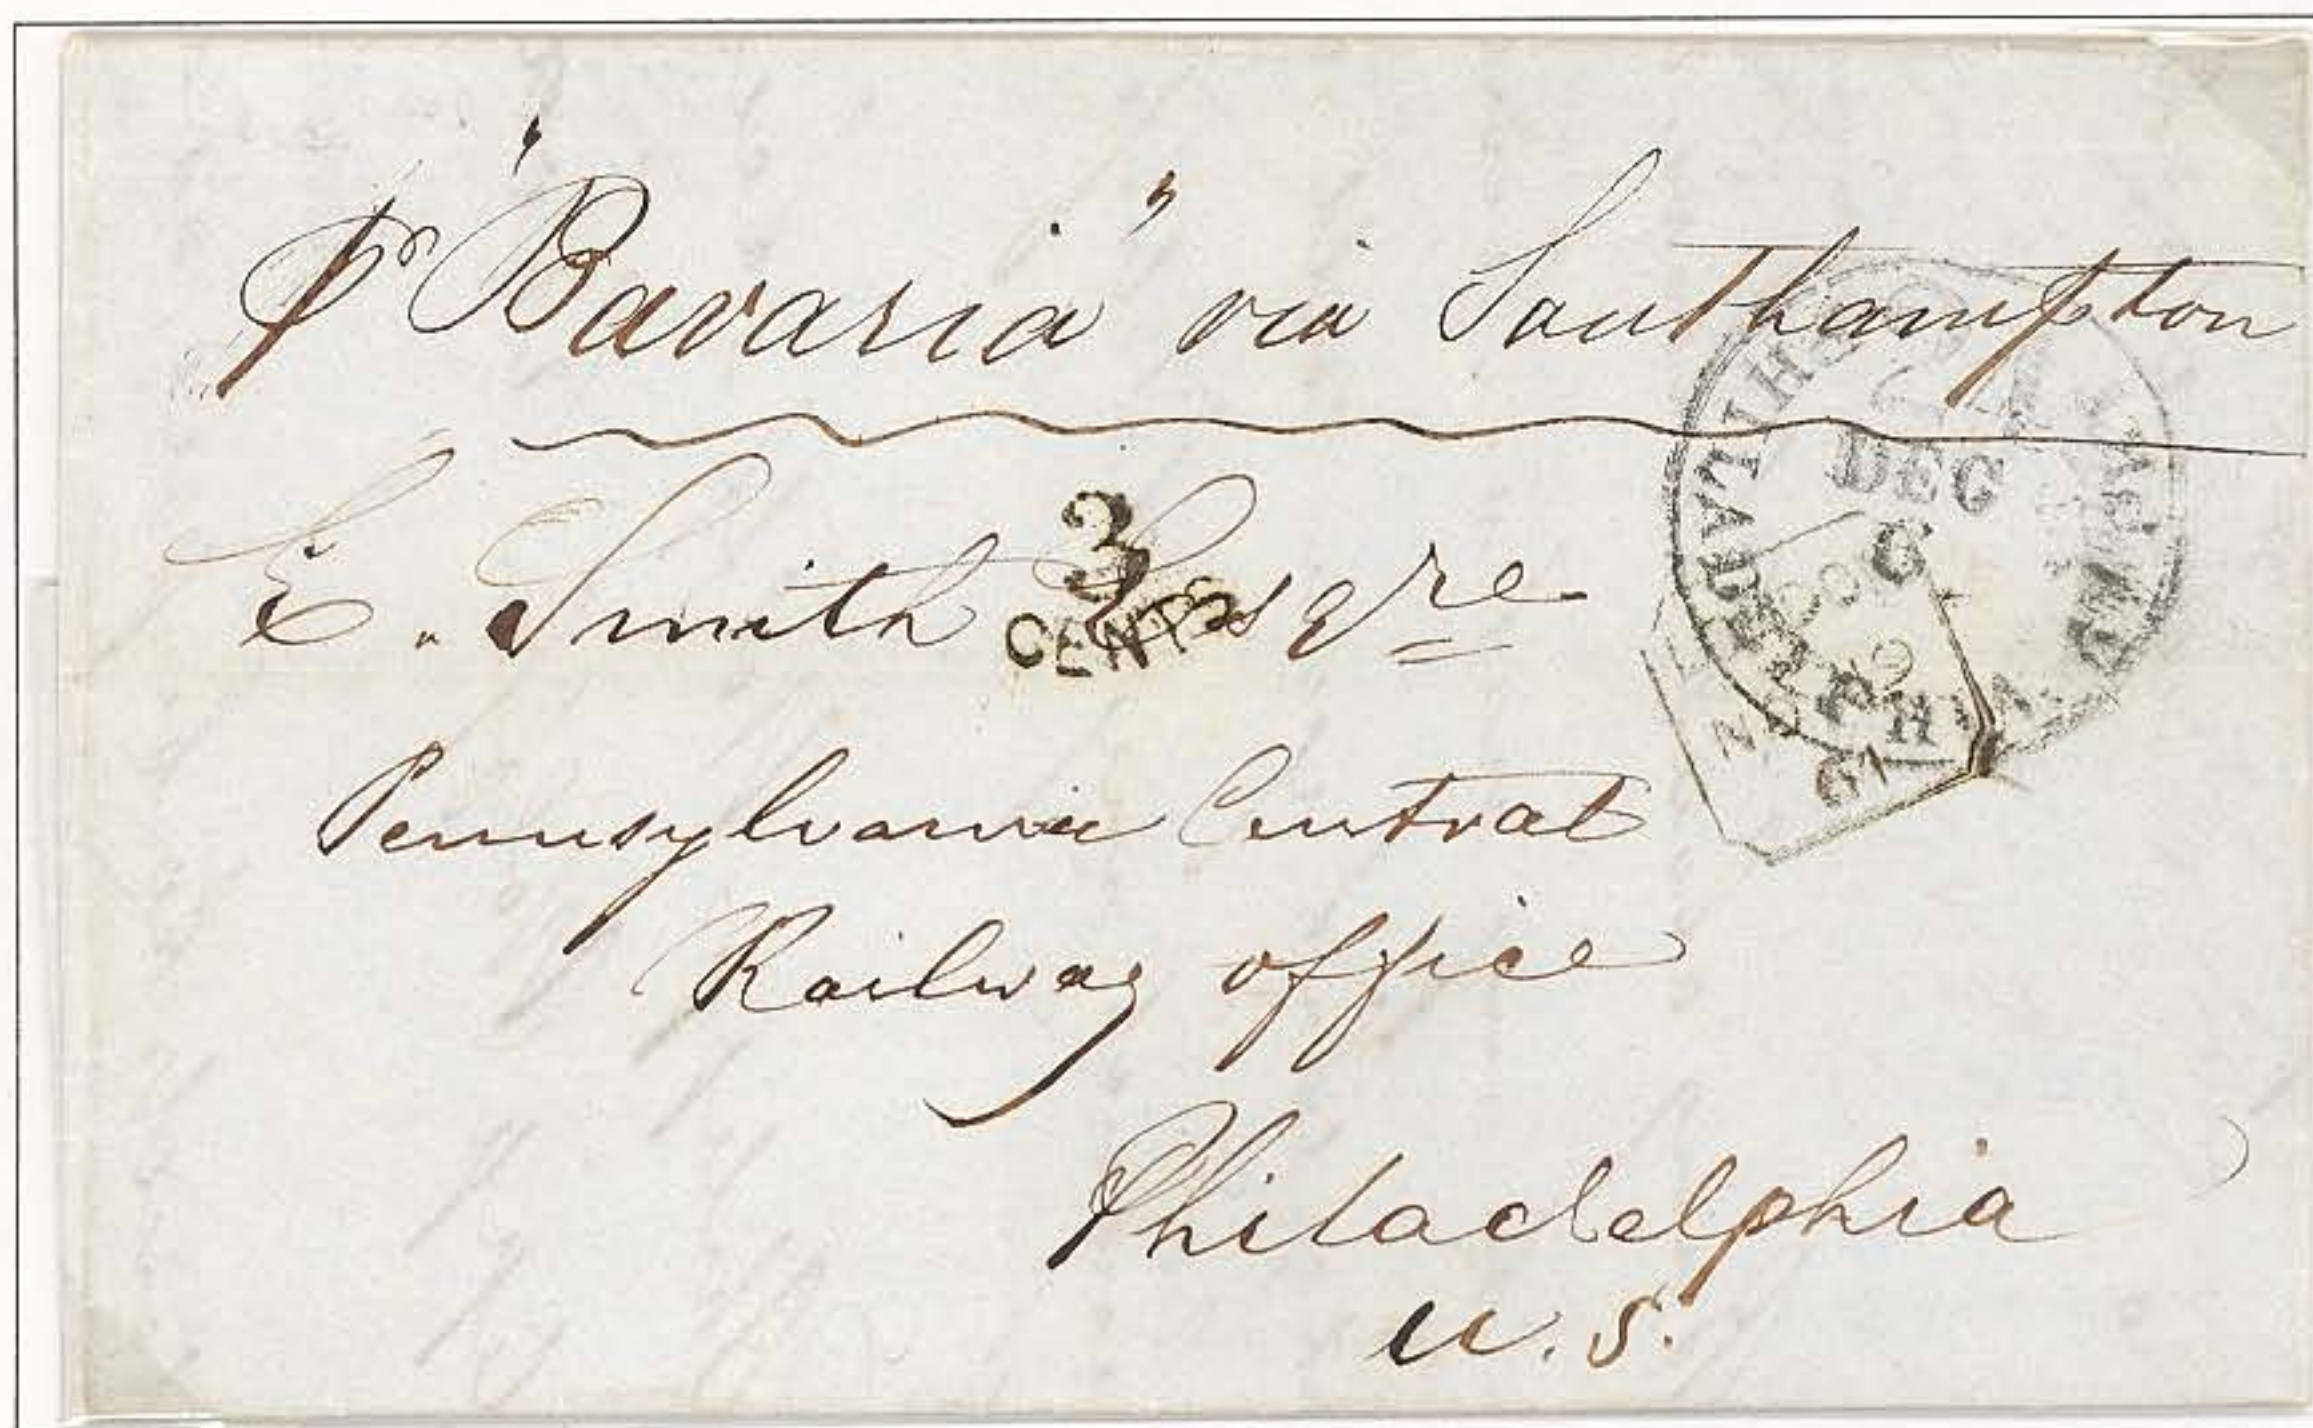 pr "Bavaria" via Southampton
E. Smith Esqre
3
CENTS
Pennsylvania Central
Railway office
Philadelphia
U.S.
PHILADELPHIA
DEC
61